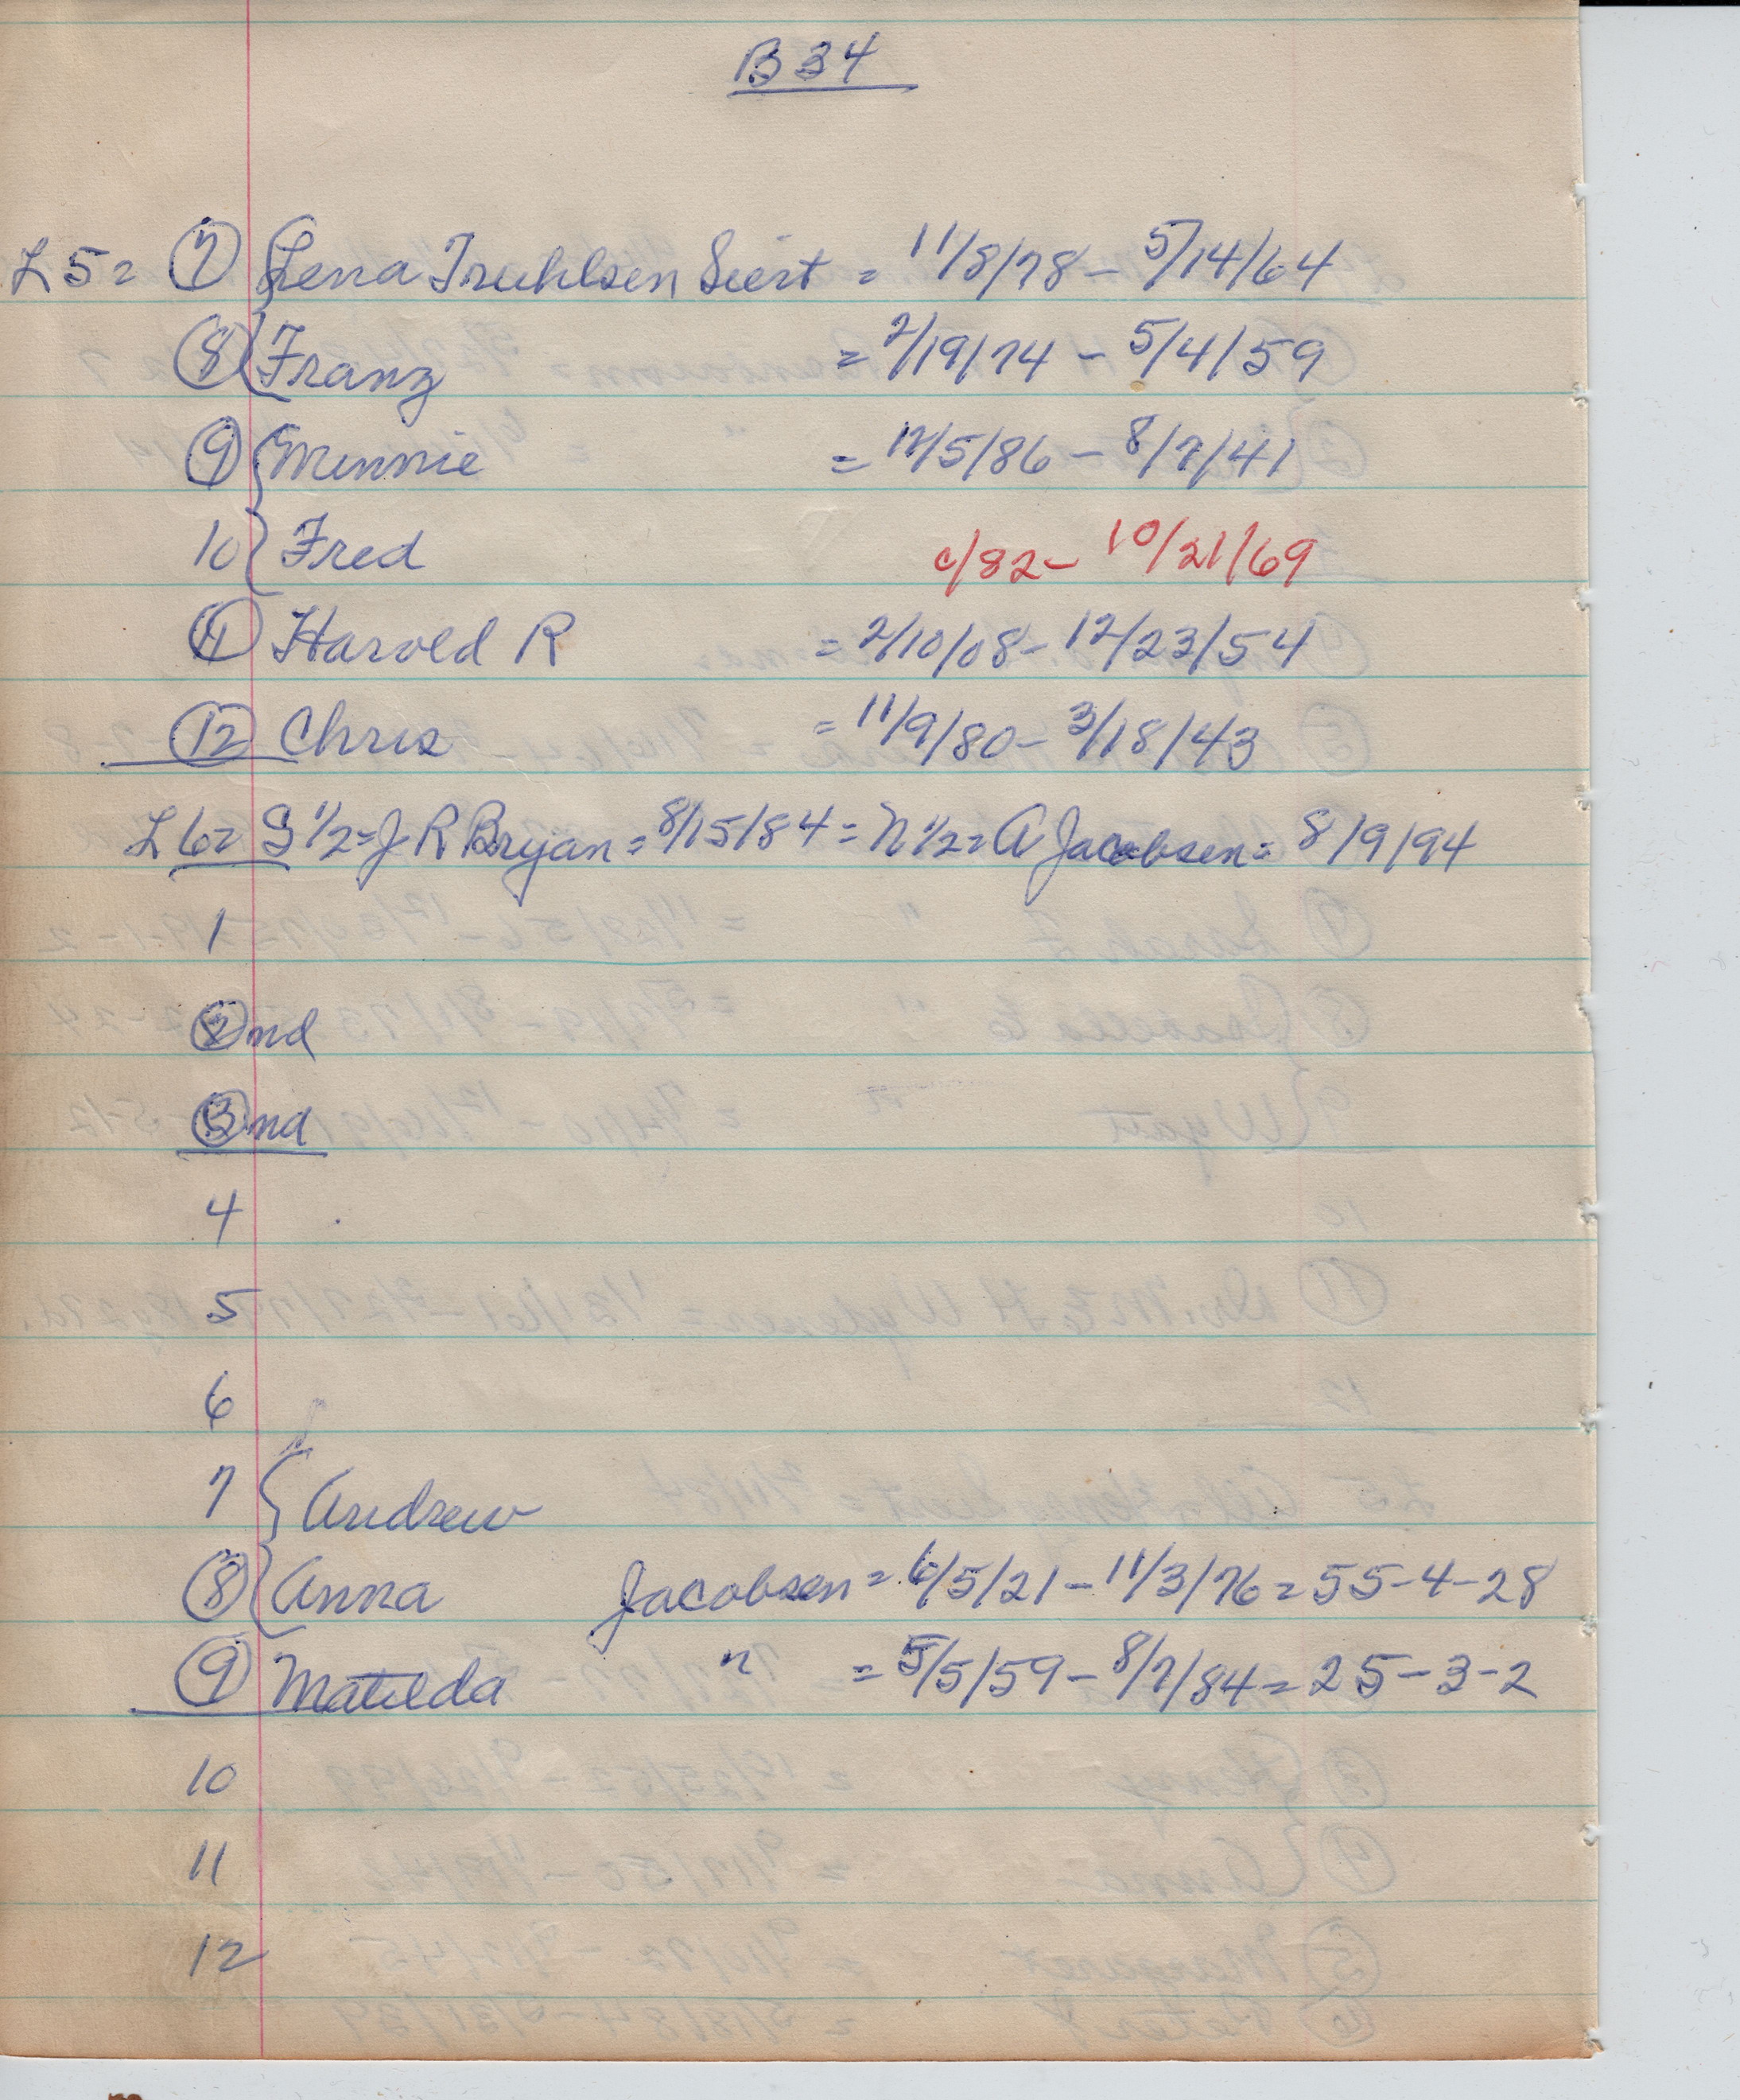 B 34
L 5 = 7 Lena Truhlsen Siert = 11/8/78 - 5/14/64
8 Franz = 2/19/74 - 5/4/59
9 Minnie = 12/5/86 - 8/7/41
10 Fred c/82 - 10/21/69
11 Harold R = 2/10/08 - 12/23/54
12 Chris = 11/9/80 - 3/18/43
L 6 = S 1/2 = J R Bryan = 8/15/84 = N 1/2 = A Jacobsen = 8/9/94
1
2 nd
3 nd
4
5
6
7 { Andrew
8 { Anna Jacobsen = 6/5/21 - 11/3/76 = 55-4-28
9 Matilda " = 5/5/59 - 8/7/84 = 25-3-2
10
11
12